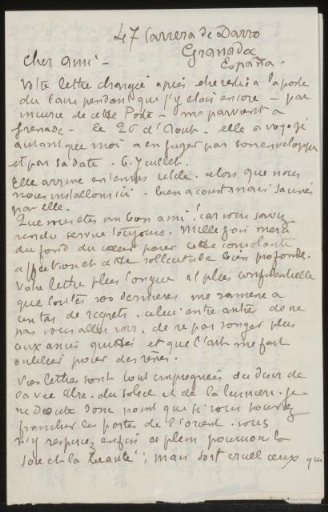 47 Carrera de Darro
Granada
España.
Cher ami -
Votre lettre après être restée à la poste
du Caire pendant que j'y étais encore - par
incurie de cette Poste - me parvient à
Grenade - le 26 d'Août. elle a voyagé
autant que moi à en juger par son enveloppe
et par sa date - 6 Juillet.
Elle arrive en temps utile. alors que nous
nous installons ici - bien à court mais
par elle.
Que vous êtes un bon ami! car vous savez
rendre service toujours. Mille fois merci
du fond du cœur pour cette consolante
affection et cette sollicitude bien profonde.
Votre lettre plus longue et plus confidentielle
que toutes vos dernières me ramène à
un tas de regrets. celui entre autre de ne
pas vous aller voir, de ne pas songer plus
aux amis quittés et que l'art me fait
oublier pour des rêves.
Vos lettres sont tout imprégnées du désir de
la vie libre. du soleil et de la lumière. je
ne doute donc point que si vous pouvez
franchir les portes de l'Orient. vous
n'y respiriez enfin à pleins poumons la
joie et la beauté; mais sont cruel ceux qui